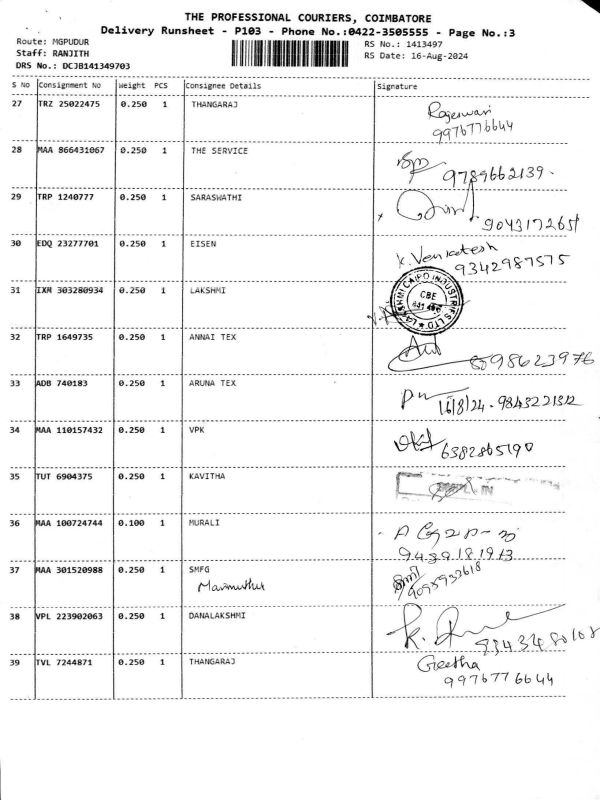 THE PROFESSIONAL COURIERS, COIMBATORE
Delivery Runsheet - P103 - Phone No.:0422-3505555 - Page No.:3
Route: MGPUDUR
Staff: RANJITH
DRS No.: DCJB141349703
RS No.: 1413497
RS Date: 16-Aug-2024
S No Consignment No Weight PCS Consignee Details Signature
27 TRZ 25022475 0.250 1 THANGARAJ Rajeswari
9976776644
28 MAA 866431067 0.250 1 THE SERVICE 9789662139.
29 TRP 1240777 0.250 1 SARASWATHI
9043172651
30 EDQ 23277701 0.250 1 EISEN K. Venkatesh
9342987575
31 IXM 303280934 0.250 1 LAKSHMI LAKSHMI CAIPO INDUSTRIES LTD CBE
32 TRP 1649735 0.250 1 ANNAI TEX
33 ADB 740183 0.250 1 ARUNA TEX 16/8/24 - 9843221312
34 MAA 110157432 0.250 1 VPK 6382865190
35 TUT 6904375 0.250 1 KAVITHA
36 MAA 100724744 0.100 1 MURALI
9439181913
37 MAA 301520988 0.250 1 SMFG
Marimuthu 9095932618
38 VPL 223902063 0.250 1 DANALAKSHMI
39 TVL 7244871 0.250 1 THANGARAJ Geetha
9976776644